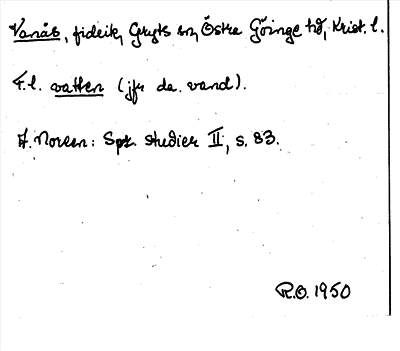 Vanås, fideik, Gryts sn, Östra Göinge hd, Krist. l.
F.l. vatten (jfr da. vand).
A. Noreen: Spr. studier II, s. 83.
R.O. 1950